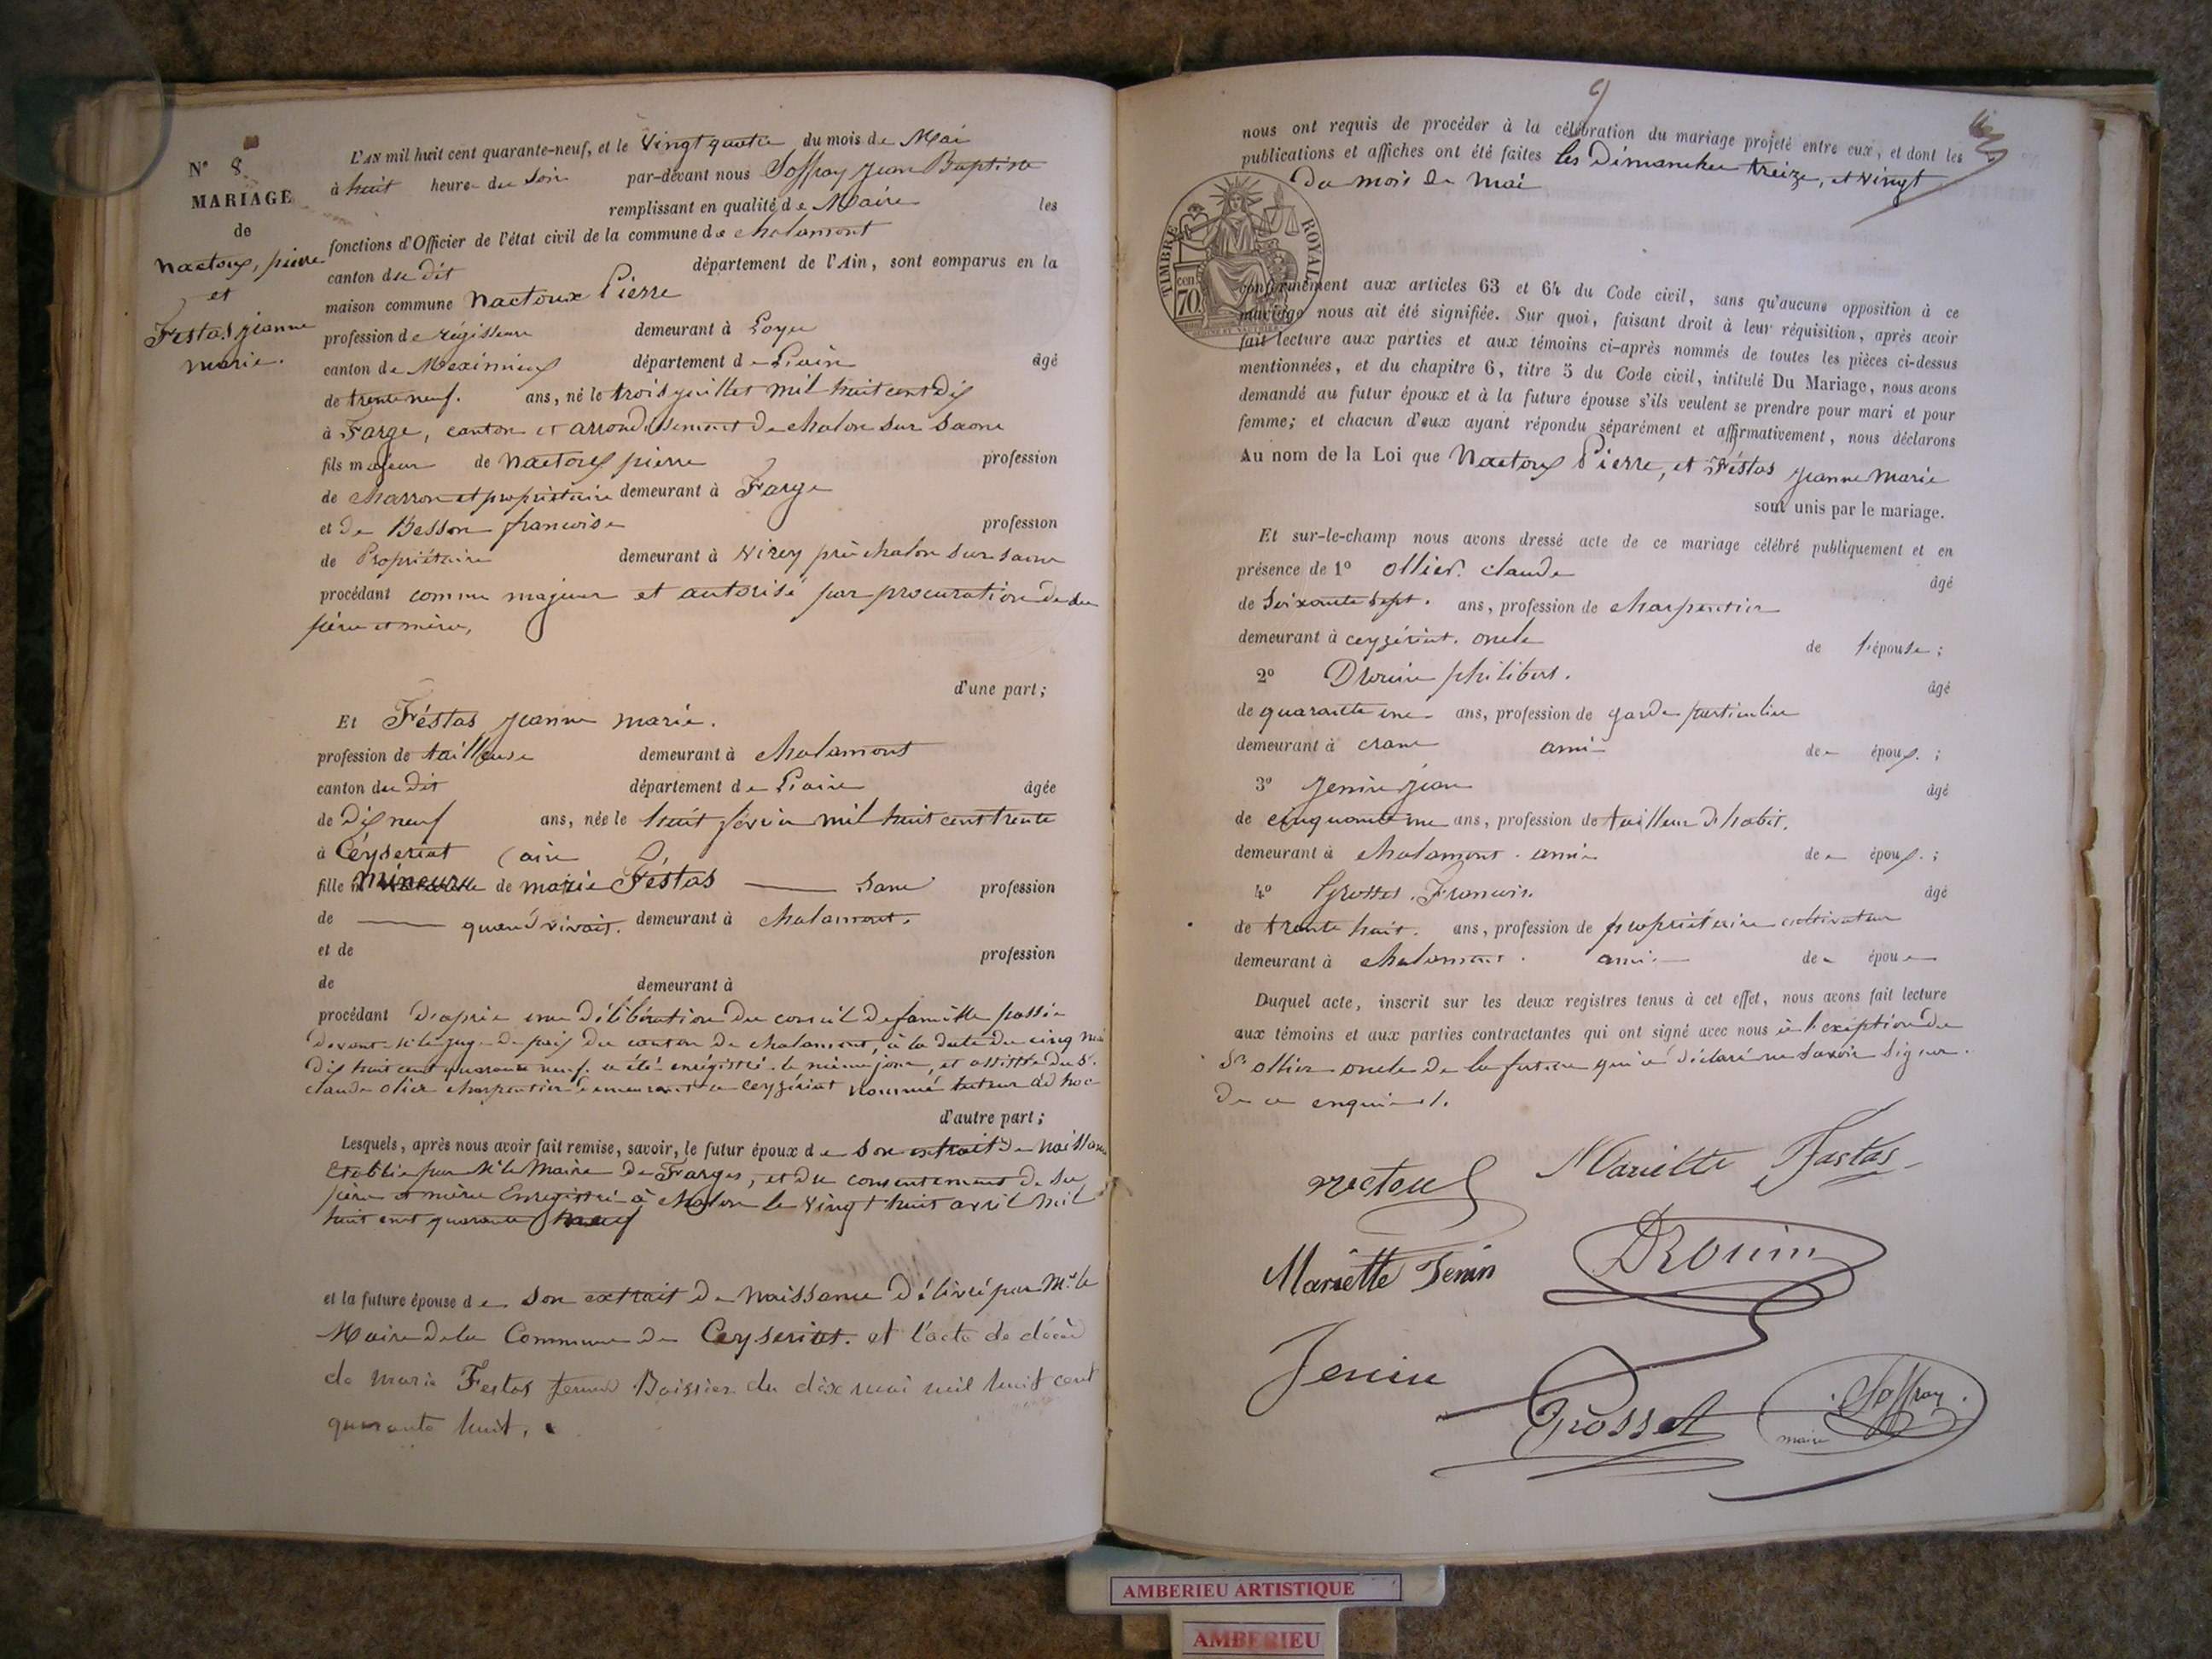 N° 8.
MARIAGE
de
Nactoux, pierre
et
Festas jeanne
marie.
L'AN mil huit cent quarante-neuf, et le vingt quatre du mois de Mai
à huit heure du Soir par-devant nous Soffray Jean Baptiste
remplissant en qualité de Maire les
fonctions d'Officier de l'état civil de la commune de chalamont
canton du dit département de l'Ain, sont comparus en la
maison commune Nactoux Pierre
profession de régisseur demeurant à Loyes
canton de Meximieux département de l'ain âgé
de trente neuf. ans, né le trois juillet mil huit cent dix
à Farge, canton et arrondissement de chalon sur Saone
fils majeur de Nactoux pierre profession
de charron et propriétaire demeurant à Farge
et de Besson francoise profession
de Propriétaire demeurant à Virey près chalon sur saone
procédant comme majeur et autorisé par procuration de ses
père et mère,
d'une part;
Et Féstas jeanne marie.
profession de tailleuse demeurant à chalamont
canton du dit département de l'ain âgée
de dix neuf ans, née le huit février mil huit cent trente
à Ceyseriat (ain
fille mineure de marie Féstas — sans profession
de — quand vivait. demeurant à chalamont.
et de profession
de demeurant à
procédant d'après une délibération du conseil de famille passée
devant Mr le juge de paix du canton de chalamont, à la date du cinq mai
dix huit cent quarante neuf. a été enrégistré le même jour, et assistée du Sr.
claude olier charpentier demeurant à ceyzériat nommé tuteur ad hoc
d'autre part;
Lesquels, après nous avoir fait remise, savoir, le futur époux de Son extrait de naissance
Etablie par Mr le Maire de Farges, et du consentement de ses
père et mère Enregistré à chalon le vingt huit avril mil
huit cent quarante neuf
et la future épouse de Son extrait de Naissance délivré par Mr le
Maire de la Commune de Ceyseriat. et l'acte de décès
de marie Festas femme Boissier du dix mai mil huit cent
quarante huit.
9
nous ont requis de procéder à la célébration du mariage projeté entre eux, et dont les
publications et affiches ont été faites les Dimanches treize, et vingt
du mois de mai
TIMBRE ROYAL
70 cen
conformément aux articles 63 et 64 du Code civil, sans qu'aucune opposition à ce
mariage nous ait été signifiée. Sur quoi, faisant droit à leur réquisition, après avoir
fait lecture aux parties et aux témoins ci-après nommés de toutes les pièces ci-dessus
mentionnées, et du chapitre 6, titre 5 du Code civil, intitulé Du Mariage, nous avons
demandé au futur époux et à la future épouse s'ils veulent se prendre pour mari et pour
femme; et chacun d'eux ayant répondu séparément et affirmativement, nous déclarons
Au nom de la Loi que Nactoux Pierre, et Féstas jeanne Marie
sont unis par le mariage.
Et sur-le-champ nous avons dressé acte de ce mariage célébré publiquement et en
présence de 1° ollier. claude âgé
de Soixante sept. ans, profession de charpentier
demeurant à ceyzériat. oncle de l'épouse;
2° Drouin philibert. âgé
de quarante une ans, profession de garde particulier
demeurant à crans ami de époux.;
3° Jenin jean âgé
de cinquante une ans, profession de tailleur d'habit.
demeurant à chalamont. ami de époux.;
4° Grosset. Francois. âgé
de trente huit. ans, profession de propriétaire cultivateur
demeurant à chalamont. ami de épou
Duquel acte, inscrit sur les deux registres tenus à cet effet, nous avons fait lecture
aux témoins et aux parties contractantes qui ont signé avec nous à l'exéption du
Sr ollier oncle de la future qui a déclaré ne savoir signer.
de ce enquis.
nectoux Mariette Fastas
Mariette Jenin DROUIN
Jenin
Grosset Soffray
maire
AMBERIEU ARTISTIQUE
AMBERIEU